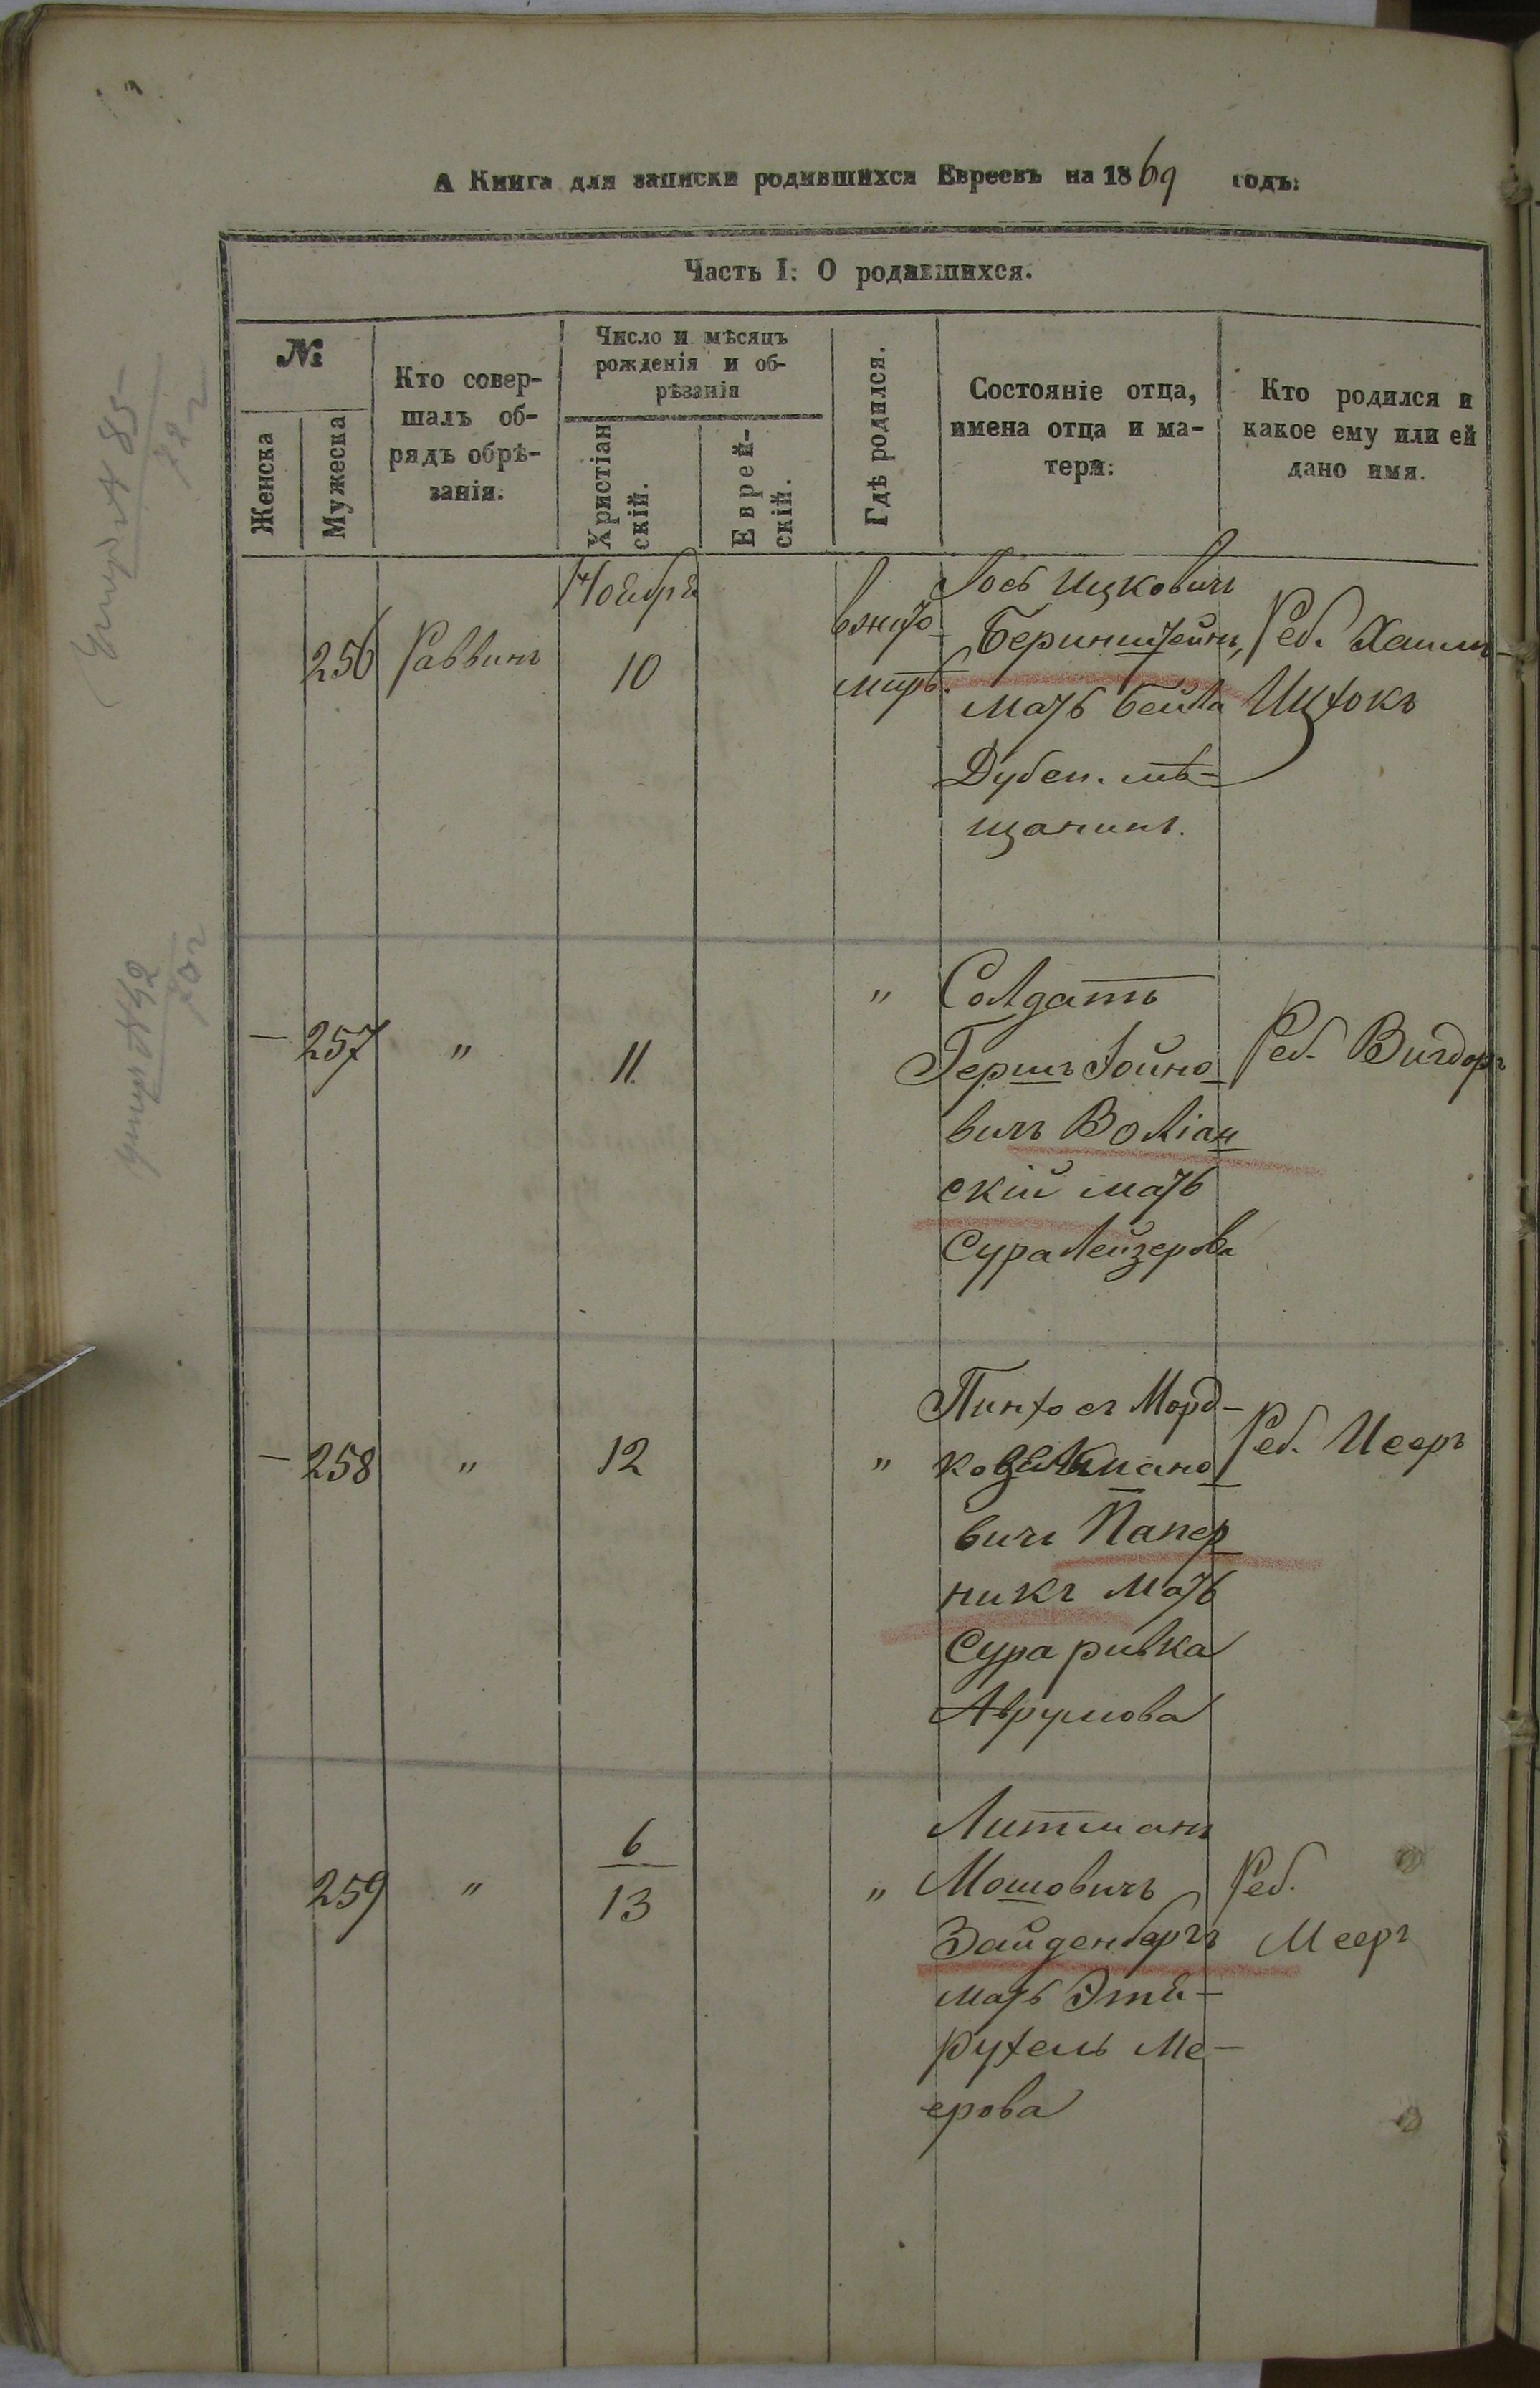 А Книга для записки родившихся Евреевъ на 1869 годъ:
Часть I: О родившихся.
№
Женска
Мужеска
Кто совер-
шалъ об-
рядъ обрѣ-
занія.
Число и мѣсяцъ
рожденія и об-
рѣзанія
Христіан
скій.
Еврей-
скій.
Гдѣ родился.
Состояніе отца,
имена отца и ма-
тери:
Кто родился и
какое ему или ей
дано имя.
Ноября
256 Раввинъ 10
вжито
миръ.
Іось Ицковичъ
Беринштейнъ,
мать Бейла
Дубен. мѣ-
щанинъ.
Реб. Хаимъ-
Ицхокъ
— 257 " 11 "
Солдатъ
Гершъ Іойно
вичъ Воліан
скій мать
Сура Лейзерова
Реб. Вигдоръ
— 258 " 12 "
Пинхосъ Морд-
ко Зельмано
вичъ Папер
никъ мать
Сура ривка
Аврумова
Реб. Исеръ
259 " 6
13 "
Литманъ
Мошовичъ
Зайденбергъ
мать Этя-
Рухель Ме-
ерова
Реб.
Мееръ
умеръ № 85
72 г
умеръ № 92
70 г